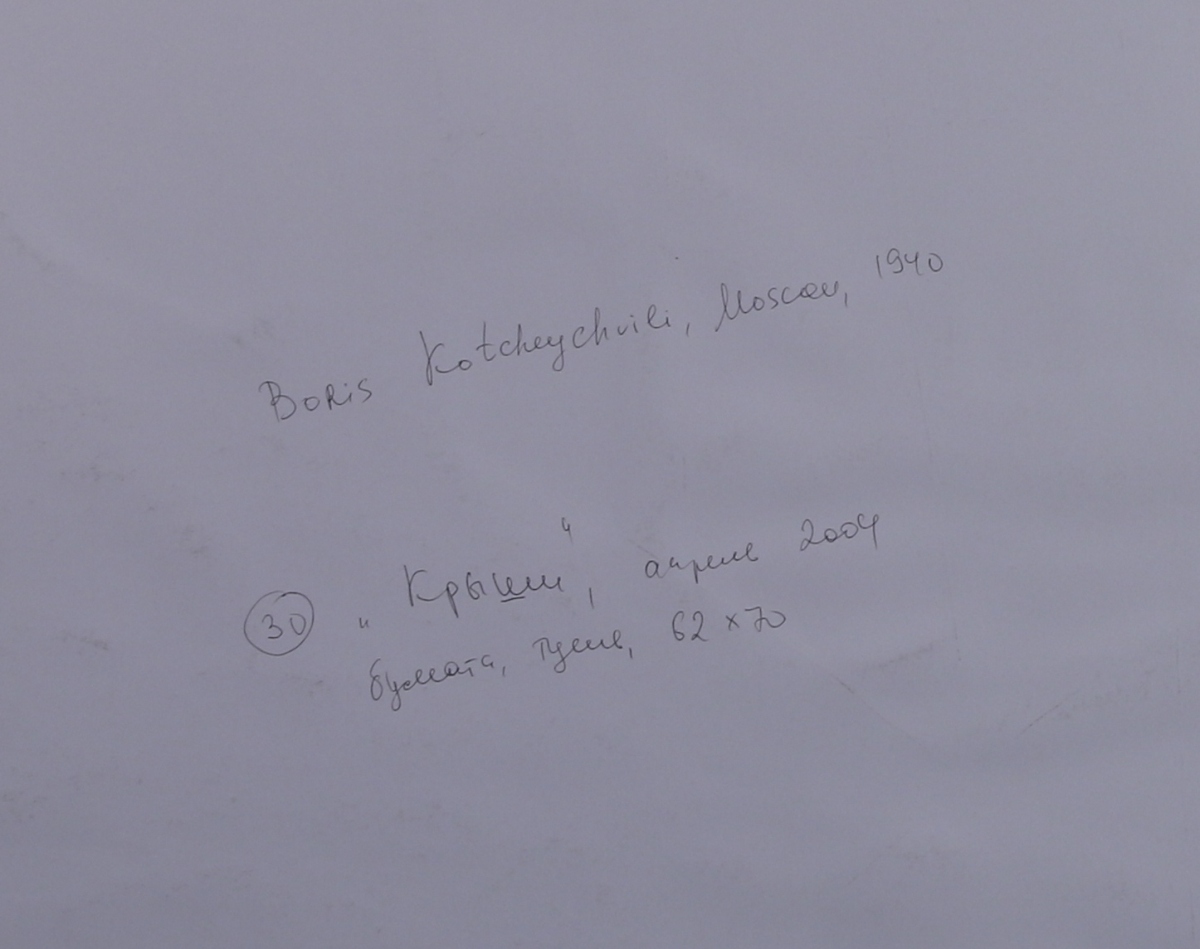 Boris Kotcheychvili, Moscow, 1940
30 „Крыши“, апрель 2004
бумага, тушь, 62 x 70